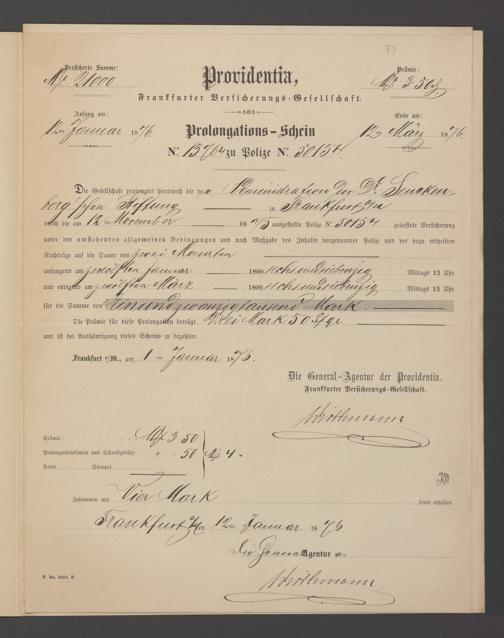 77
Versicherte Summe:
Mk 21000
Providentia,
Prämie:
Mk 3.50
Frankfurter Versicherungs-Gesellschaft.
Anfang am:
12ten Januar 1876.
Prolongations-Schein
Ende am:
12ten März 1876.
No. 13764 zu Polize No. 50154.
Die Gesellschaft prolongirt hierdurch die der Administration der Dr. Sencken-
berg'schen Stiftung zu Frankfurt a/M
durch die am 12ten November 1875 ausgestellte Polize No. 50154 geleistete Versicherung
unter den umstehenden allgemeinen Bedingungen und nach Maßgabe des Inhalts vorgenannter Polize und der dazu ertheilten
Nachträge auf die Dauer von zwei Monaten
anfangend am zwölften Januar 1800 sechsundsiebenzig Mittags 12 Uhr
und endigend am zwölften März 1800 sechsundsiebenzig Mittags 12 Uhr
für die Summe von Einundzwanzigtausend Mark.
Die Prämie für diese Prolongation beträgt Drei Mark 50
und ist bei Aushändigung dieses Scheins zu bezahlen.
Frankfurt a/M., am 1ten Januar 1876.
Die General-Agentur der Providentia,
Frankfurter Versicherungs-Gesellschaft.
Prämie Mk 3 50
Prolongationsschein und Schreibgebühr " - 50 Mk 4 -
Porto Stempel
Zusammen mit Vier Mark heute erhalten
Frankfurt a/M 12ten Januar 1876
Die General Agentur
F. No. 225